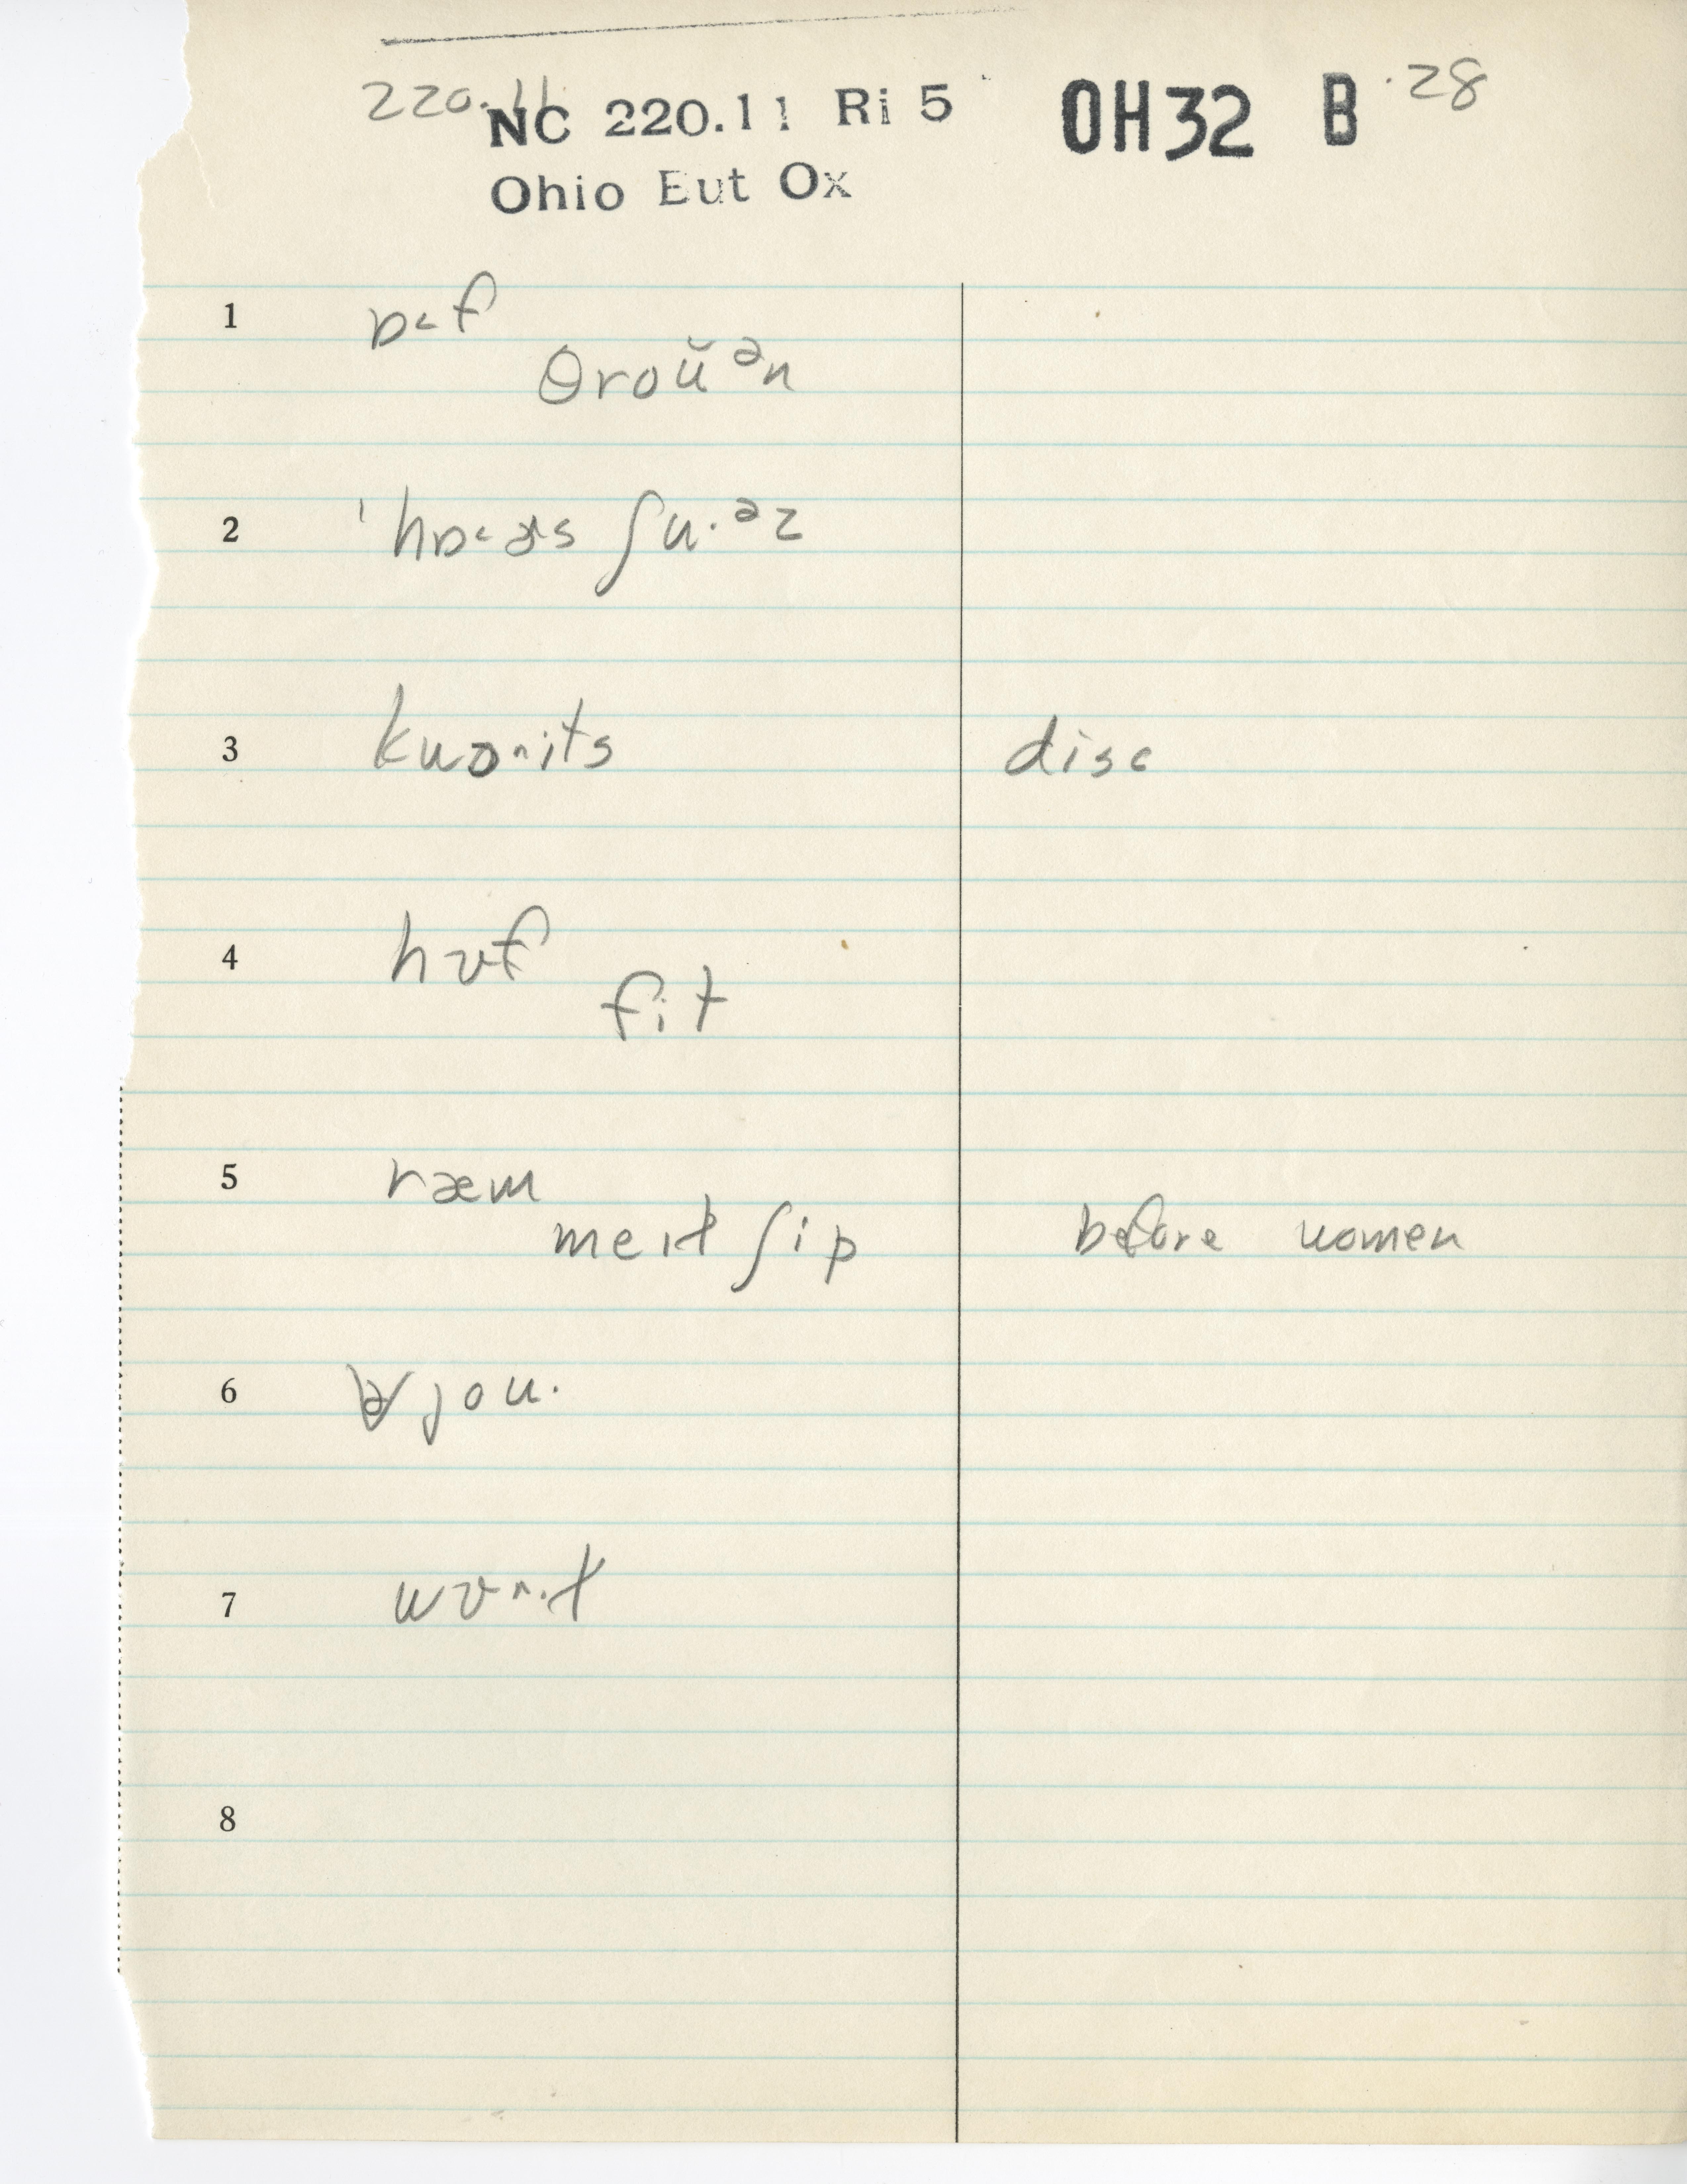 220.11
NC 220.11 Ri 5 OH32 B .28
Ohio Eut Ox
1 ɒ˂f
θroŭ ᵊn
2 ˈhɒ˂ɚs ʃu.ᵊz
3 kwɔ˄its disc
4 hʊf
fit
5 ræm
meɪt ʃip before women
6 jou.
7 wʊ˄.t
8